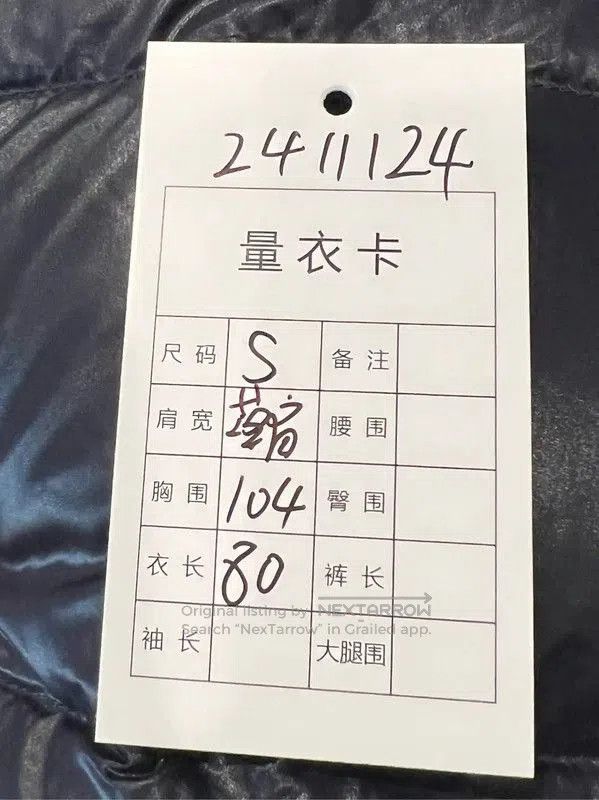 2411124
量衣卡
尺码 S 备注
肩宽 落肩 腰围
胸围 104 臀围
衣长 80 裤长
Original listing by NEXTARROW
Search "NexTarrow" in Grailed app.
袖长 大腿围